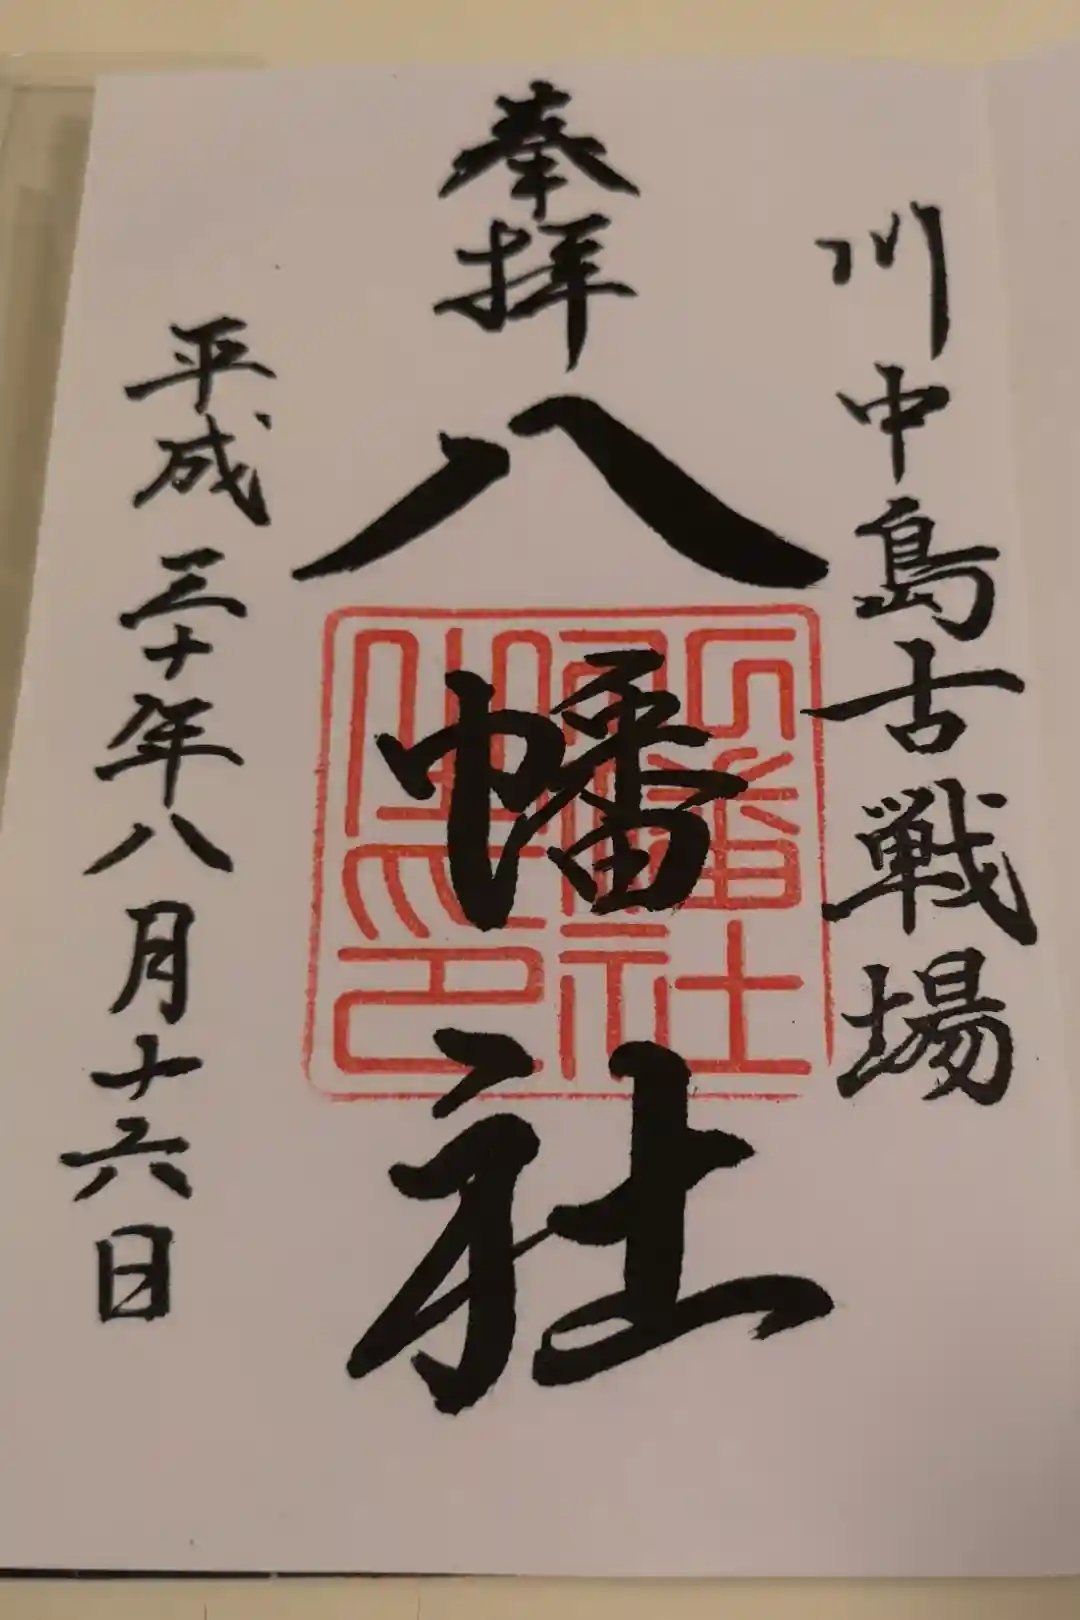 川中島古戦場
奉拝
八幡社
八幡社
平成三十年八月十六日